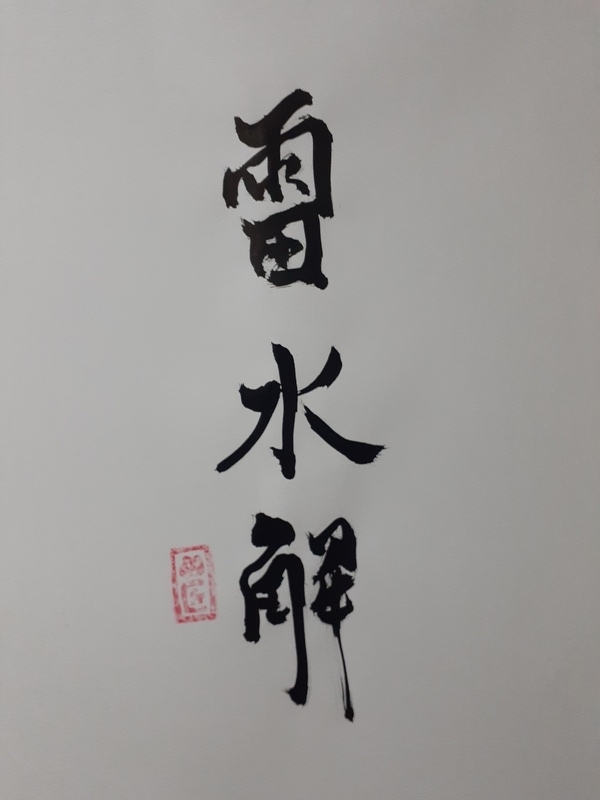 雷水解